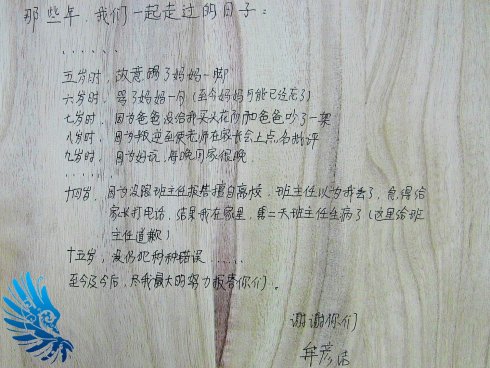 那些年,我们一起走过的日子:
......
五岁时,故意踢了妈妈一脚
六岁时,骂了妈妈一句(至今妈妈可能已忘了)
七岁时,因为爸爸没给我买火花而和爸爸吵了一架
八岁时,因为叛逆至使老师在家长会上点名批评
九岁时,因为好玩,每晚回家很晚
......
十四岁,因为没跟班主任报告擅自离校,班主任以为我丢了,急得给
家长打电话,结果我在家里,第二天班主任生病了(这里给班
主任道歉)
十五岁,最仍犯种种错误......
至今及今后,尽我最大的努力报答你们。
谢谢你们
牟彦洁